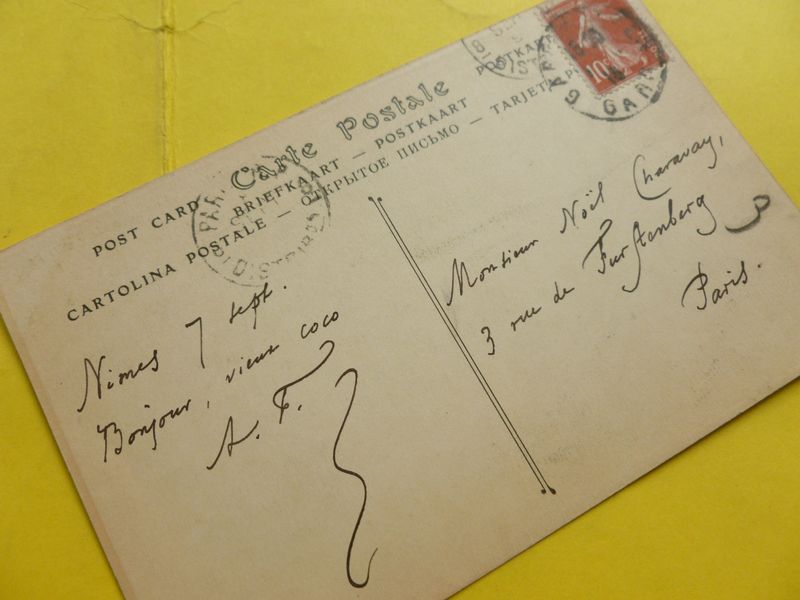 Carte Postale
POST CARD — BRIEFKAART — POSTKAART — POSTKART
CARTOLINA POSTALE — ОТКРЫТОЕ ПИСЬМО — TARJETA
Nîmes 7 sept.
Bonjour, vieux coco
A. F.
Monsieur Noël Charavay,
3 rue de Furstenberg
Paris.
10c
GARE
PARIS
DISTRIBUTION